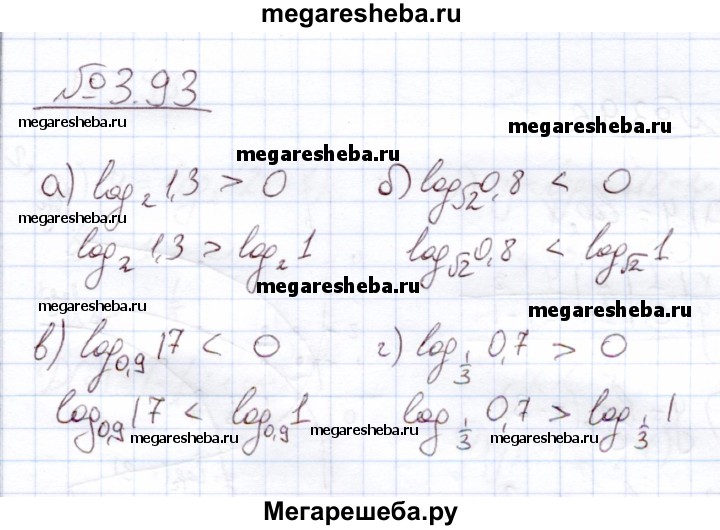 megaresheba.ru
№3.93
megaresheba.ru
megaresheba.ru
megaresheba.ru
а) log₂ 1,3 > 0 б) log_√2 0,8 < 0
megaresheba.ru
log₂ 1,3 > log₂ 1 log_√2 0,8 < log_√2 1
megaresheba.ru
megaresheba.ru
megaresheba.ru
в) log_0,9 17 < 0 г) log_1/3 0,7 > 0
log_0,9 17 < log_0,9 1 log_1/3 0,7 > log_1/3 1
megaresheba.ru
megaresheba.ru
megaresheba.ru
Мегарешеба.ру